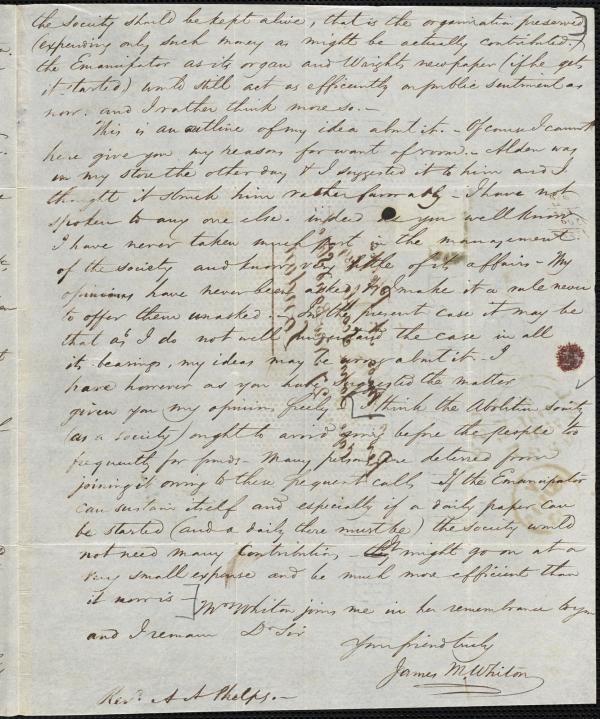 the society should be kept alive, that is the organization preserved
(expending only such money as might be actually contributed.)
the Emancipator as its organ and Wrights newspaper (if he gets
it started) would still act as efficiently on public sentiment as
now. and I rather think more so. —
This is an outline of my idea about it. — Of course I cannot
here give you my reasons for want of room. — Alden was
in my store the other day & I suggested it to him and I
thought it struck him rather favorably — I have not
spoken to any one else. indeed as you well know
I have never taken much part in the management
of the society and know very little of its affairs — My
opinions have never been asked & I make it a rule never
to offer them unasked. — In the present case it may be
that as I do not well understand the case in all
its bearings, my ideas may be wrong about it — I
have however as you have suggested the matter
given you my opinion freely [I think the Abolition Society
(as a society) ought to avoid going before the people too
frequently for funds. Many persons are deterred from
joining it owing to these frequent calls — If the Emancipator
can sustain itself and especially if a daily paper can
be started (and a daily there must be) the society would
not need many contributions — It might go on at a
very small expense and be much more efficient than
it now is — ] Mrs Whiton joins me in her remembrance to you
and I remain Dr Sir
Your friend truly
James M. Whiton
Revd. A A Phelps. —